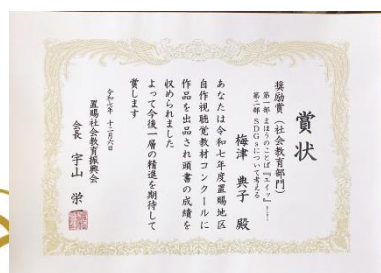 賞状
奨励賞（社会教育部門）
第一部 まほうのことば『エイッ』
第二部 SDGsについて考える
梅津 典子 殿
あなたは令和七年度置賜地区
自作視聴覚教材コンクールに
作品を出品され頭書の成績を
収められました
よって今後一層の精進を期待して
賞します
令和七年 十二月六日
置賜社会教育振興会
会長 宇山 栄